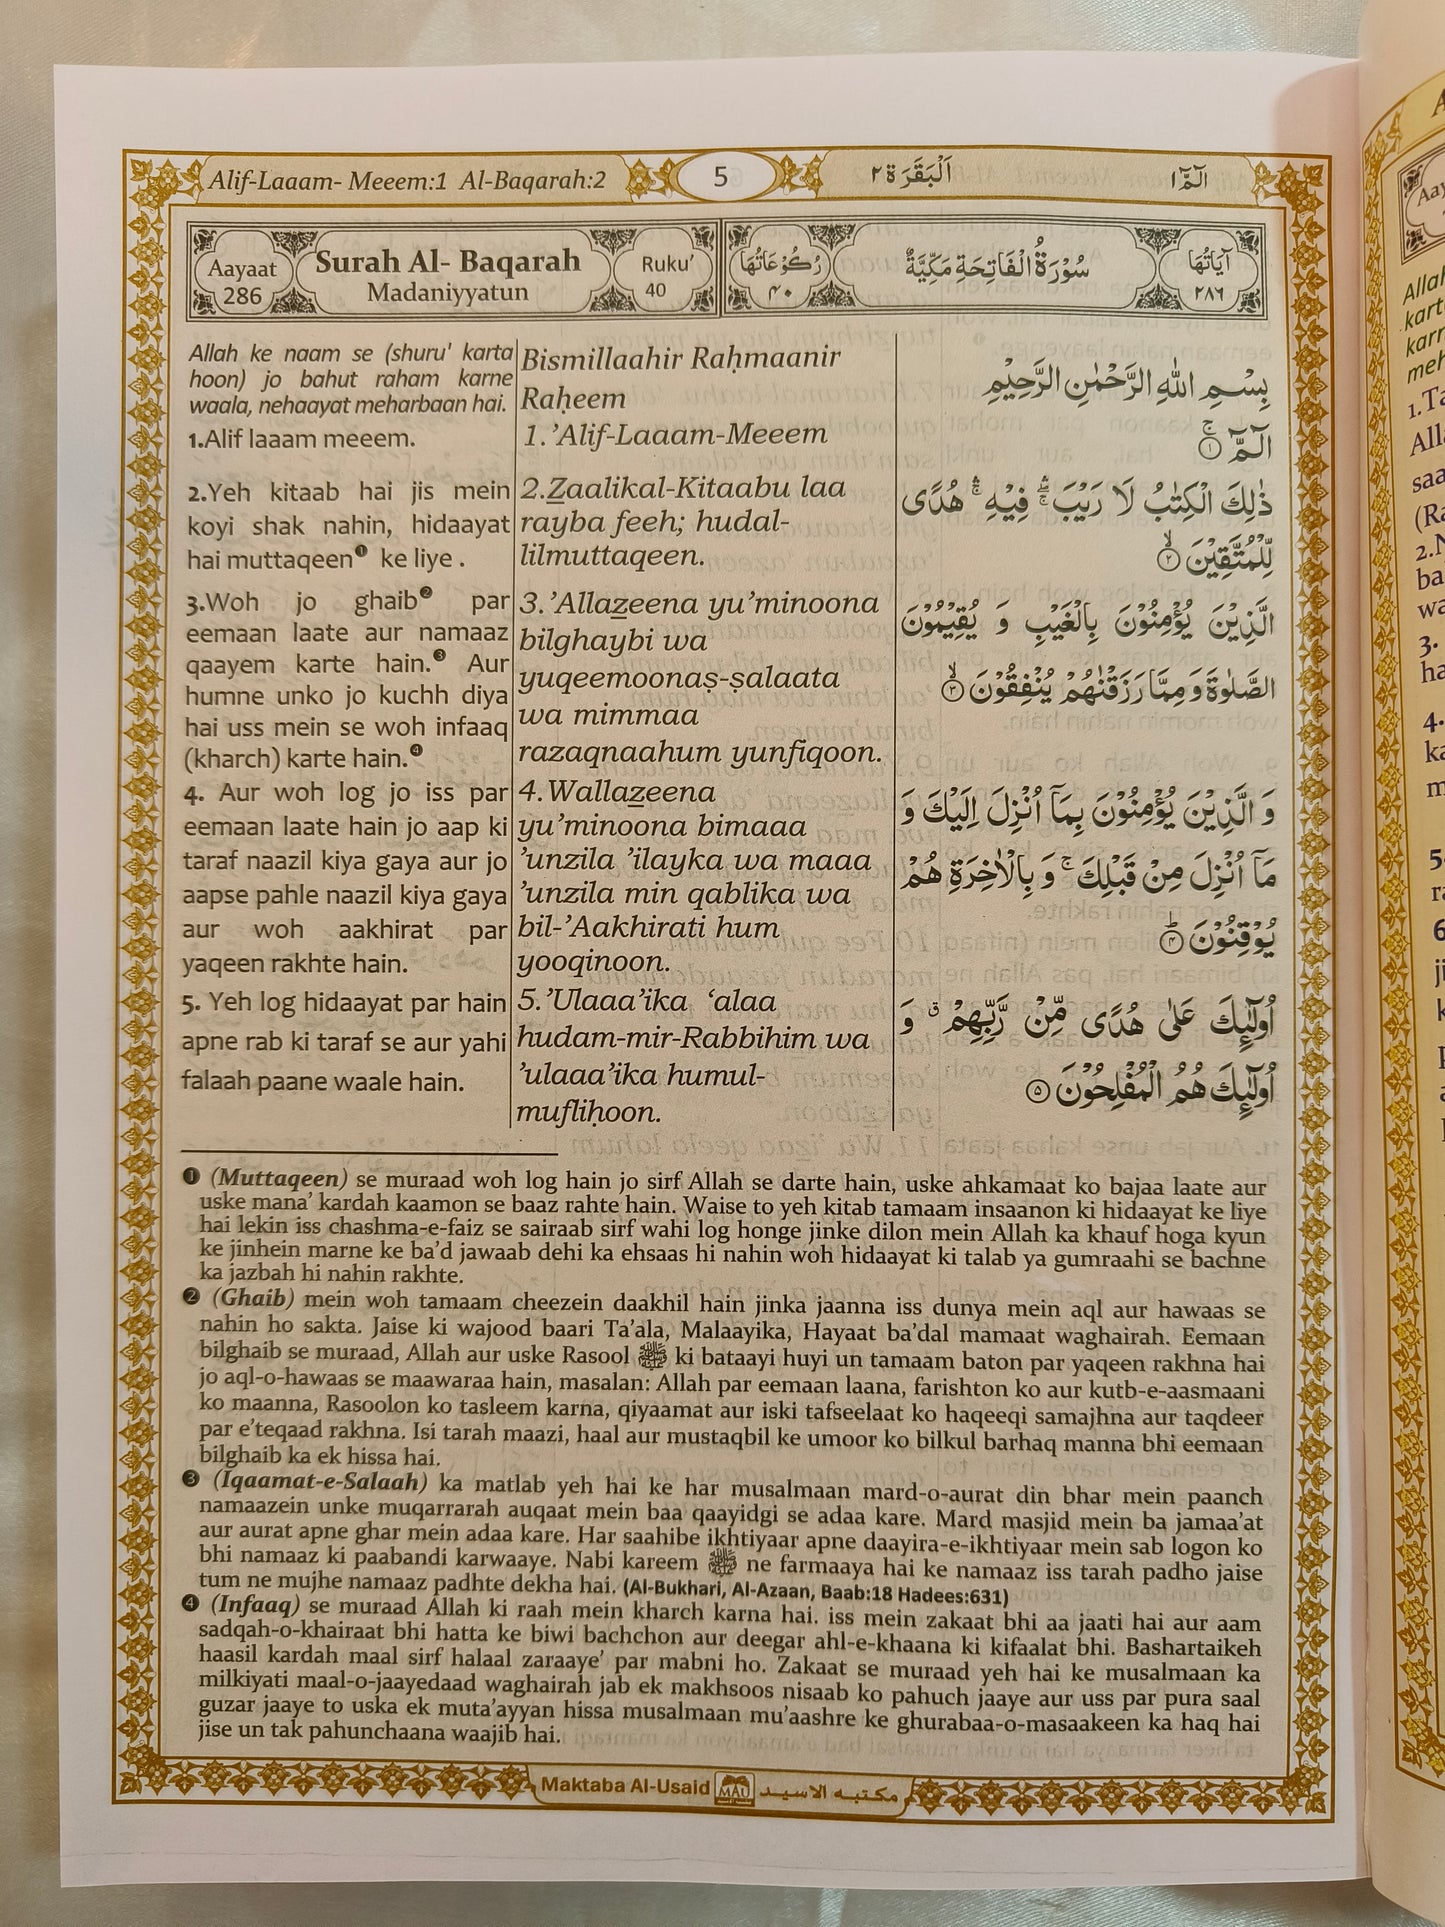 Alif-Laaam- Meeem:1 Al-Baqarah:2
5
اَلْبَقَرَة ٢
الٓمّٓ ١
Aayaat
286
Surah Al- Baqarah
Madaniyyatun
Ruku’
40
رُكُوْعَاتُهَا
٤٠
سُوْرَةُ الْفَاتِحَةِ مَكِّيَّةٌ
آيَاتُهَا
٢٨٦
Allah ke naam se (shuru' karta
hoon) jo bahut raham karne
waala, nehaayat meharbaan hai.
1.Alif laaam meeem.
2.Yeh kitaab hai jis mein
koyi shak nahin, hidaayat
hai muttaqeen❶ ke liye .
3.Woh jo ghaib❷ par
eemaan laate aur namaaz
qaayem karte hain.❸ Aur
humne unko jo kuchh diya
hai uss mein se woh infaaq
(kharch) karte hain.❹
4. Aur woh log jo iss par
eemaan laate hain jo aap ki
taraf naazil kiya gaya aur jo
aapse pahle naazil kiya gaya
aur woh aakhirat par
yaqeen rakhte hain.
5. Yeh log hidaayat par hain
apne rab ki taraf se aur yahi
falaah paane waale hain.
Bismillaahir Raḥmaanir
Raḥeem
1.’Alif-Laaam-Meeem
2.Z̲aalikal-Kitaabu laa
rayba feeh; hudal-
lilmuttaqeen.
3.’Allaz̲eena yu’minoona
bilghaybi wa
yuqeemoonaṣ-ṣalaata
wa mimmaa
razaqnaahum yunfiqoon.
4.Wallaz̲eena
yu’minoona bimaaa
’unzila ’ilayka wa maaa
’unzila min qablika wa
bil-’Aakhirati hum
yooqinoon.
5.’Ulaaa’ika ‘alaa
hudam-mir-Rabbihim wa
’ulaaa’ika humul-
mufliḥoon.
بِسْمِ اللهِ الرَّحْمٰنِ الرَّحِيْمِ
الٓمّٓ ۚ ①
ذٰلِكَ الْكِتٰبُ لَا رَيْبَ ۛۖ فِيْهِ ۛۚ هُدًى
لِّلْمُتَّقِيْنَ ۙ ②
الَّذِيْنَ يُؤْمِنُوْنَ بِالْغَيْبِ وَ يُقِيْمُوْنَ
الصَّلٰوةَ وَ مِمَّا رَزَقْنٰهُمْ يُنْفِقُوْنَ ۙ ③
وَ الَّذِيْنَ يُؤْمِنُوْنَ بِمَآ اُنْزِلَ اِلَيْكَ وَ
مَآ اُنْزِلَ مِنْ قَبْلِكَ ۚ وَ بِالْاٰخِرَةِ هُمْ
يُوْقِنُوْنَ ؕ ④
اُولٰٓئِكَ عَلٰى هُدًى مِّنْ رَّبِّهِمْ ۗ وَ
اُولٰٓئِكَ هُمُ الْمُفْلِحُوْنَ ⑤
❶ (Muttaqeen) se muraad woh log hain jo sirf Allah se darte hain, uske ahkamaat ko bajaa laate aur
uske mana’ kardah kaamon se baaz rahte hain. Waise to yeh kitab tamaam insaanon ki hidaayat ke liye
hai lekin iss chashma-e-faiz se sairaab sirf wahi log honge jinke dilon mein Allah ka khauf hoga kyun
ke jinhein marne ke ba’d jawaab dehi ka ehsaas hi nahin woh hidaayat ki talab ya gumraahi se bachne
ka jazbah hi nahin rakhte.
❷ (Ghaib) mein woh tamaam cheezein daakhil hain jinka jaanna iss dunya mein aql aur hawaas se
nahin ho sakta. Jaise ki wajood baari Ta’ala, Malaayika, Hayaat ba’dal mamaat waghairah. Eemaan
bilghaib se muraad, Allah aur uske Rasool ﷺ ki bataayi huyi un tamaam baton par yaqeen rakhna hai
jo aql-o-hawaas se maawaraa hain, masalan: Allah par eemaan laana, farishton ko aur kutb-e-aasmaani
ko maanna, Rasoolon ko tasleem karna, qiyaamat aur iski tafseelaat ko haqeeqi samajhna aur taqdeer
par e’teqaad rakhna. Isi tarah maazi, haal aur mustaqbil ke umoor ko bilkul barhaq manna bhi eemaan
bilghaib ka ek hissa hai.
❸ (Iqaamat-e-Salaah) ka matlab yeh hai ke har musalmaan mard-o-aurat din bhar mein paanch
namaazein unke muqarrarah auqaat mein baa qaayidgi se adaa kare. Mard masjid mein ba jamaa’at
aur aurat apne ghar mein adaa kare. Har saahibe ikhtiyaar apne daayira-e-ikhtiyaar mein sab logon ko
bhi namaaz ki paabandi karwaaye. Nabi kareem ﷺ ne farmaaya hai ke namaaz iss tarah padho jaise
tum ne mujhe namaaz padhte dekha hai. (Al-Bukhari, Al-Azaan, Baab:18 Hadees:631)
❹ (Infaaq) se muraad Allah ki raah mein kharch karna hai. iss mein zakaat bhi aa jaati hai aur aam
sadqah-o-khairaat bhi hatta ke biwi bachchon aur deegar ahl-e-khaana ki kifaalat bhi. Bashartaikeh
haasil kardah maal sirf halaal zaraaye’ par mabni ho. Zakaat se muraad yeh hai ke musalmaan ka
milkiyati maal-o-jaayedaad waghairah jab ek makhsoos nisaab ko pahuch jaaye aur uss par pura saal
guzar jaaye to uska ek muta’ayyan hissa musalmaan mu’aashre ke ghurabaa-o-masaakeen ka haq hai
jise un tak pahunchaana waajib hai.
Maktaba Al-Usaid
MAU
مكتبه الاسيد